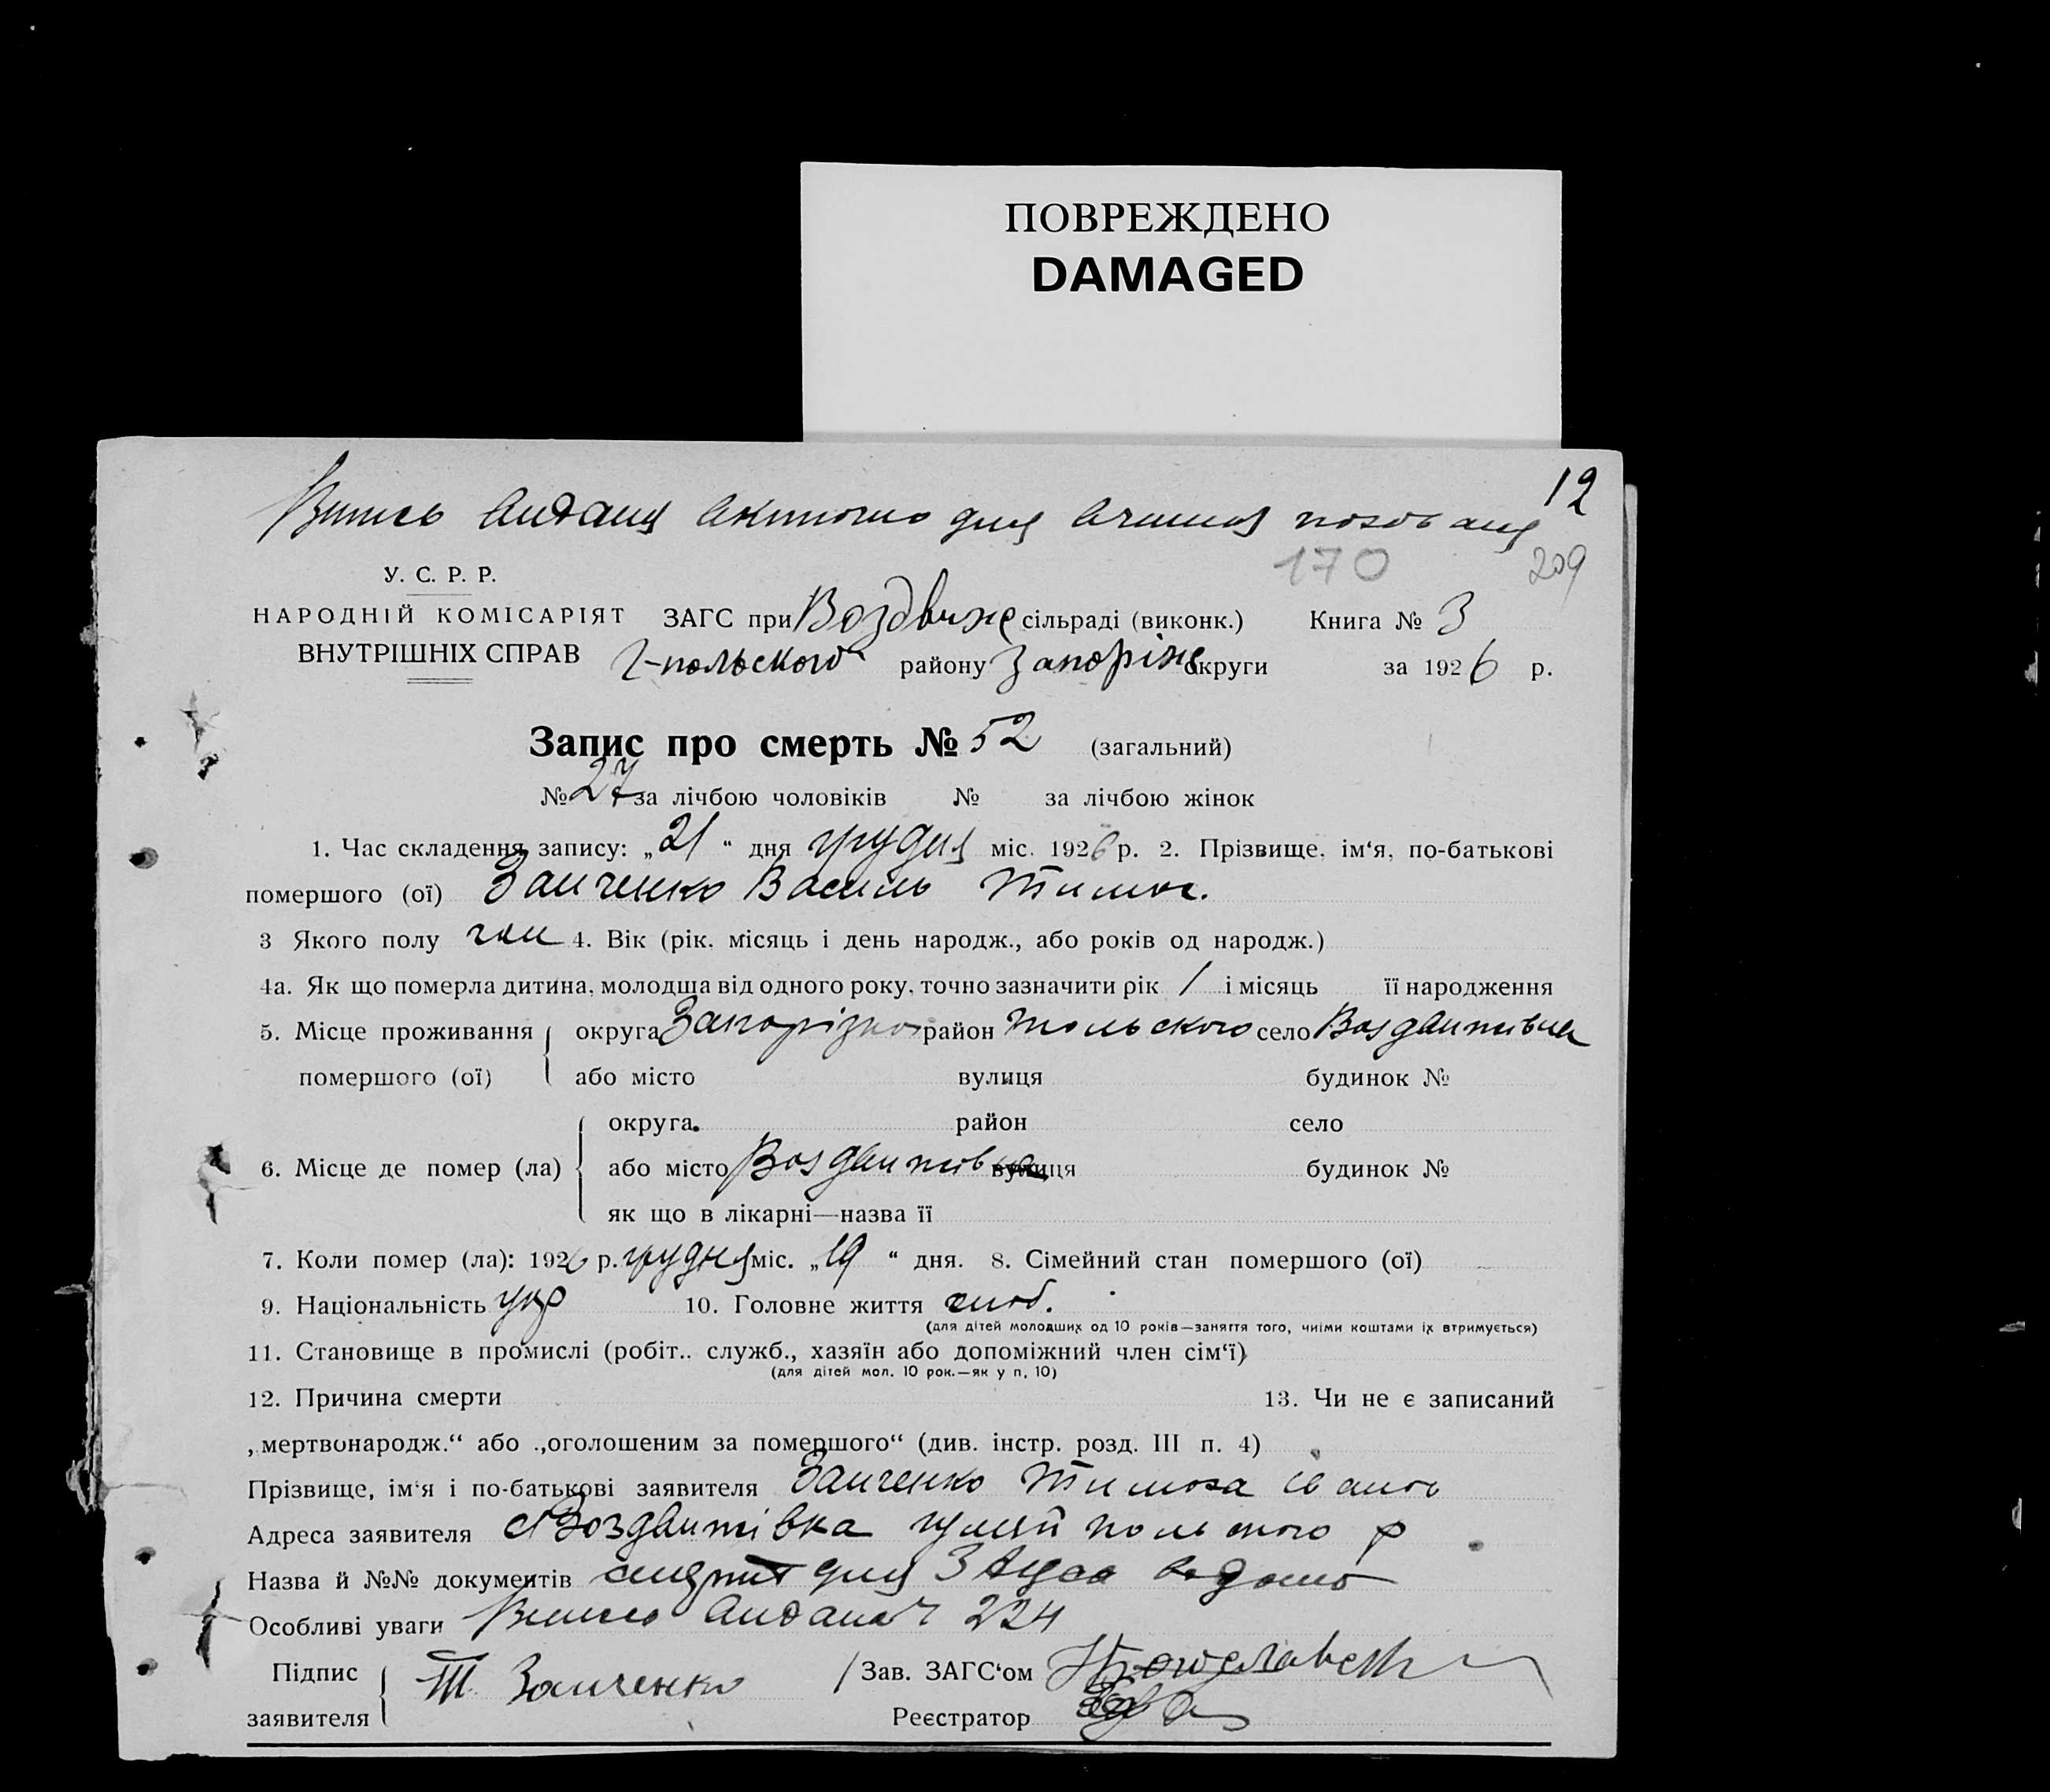 ПОВРЕЖДЕНО
DAMAGED
12
Випись видана дня
170 209
У. С. Р. Р.
НАРОДНІЙ КОМІСАРІЯТ ЗАГС при Воздвиже сільраді (виконк.) Книга № 3
ВНУТРІШНІХ СПРАВ Г-польского району Запоріж округи за 1926 р.
Запис про смерть № 52 (загальний)
№ 27 за лічбою чоловіків № за лічбою жінок
1. Час складення запису: „21“ дня грудня міс. 1926 р. 2. Прізвище, ім‘я, по-батькові
помершого (ої) Заиченко Василь Тимос.
3 Якого полу чол 4. Вік (рік. місяць і день народж., або років од народж.)
4а. Як що померла дитина, молодша від одного року, точно зазначити рік / і місяць її народження
5. Місце проживання округа район польского село Воздвижівка
помершого (ої) або місто вулиця будинок №
округа район село
6. Місце де помер (ла) або місто Воздвижівка вулиця будинок №
як що в лікарні—назва її
7. Коли помер (ла): 1926 р. грудня міс. „19“ дня. 8. Сімейний стан помершого (ої)
9. Національність укр 10. Головне життя хліб.
(для дітей молодших од 10 років—заняття того, чиїми коштами їх втримується)
11. Становище в промислі (робіт.. служб., хазяїн або допоміжний член сім‘ї)
(для дітей мол. 10 рок.—як у п. 10)
12. Причина смерти 13. Чи не є записаний
„мертвонародж.“ або „оголошеним за помершого“ (див. інстр. розд. III п. 4)
Прізвище, ім‘я і по-батькові заявителя Заиченко Тимоха іванов
Адреса заявителя с Воздвижівка гуляй польского р
Назва й №№ документів для
Особливі уваги Випись видана Ч 224
Підпис Т. Заиченко Зав. ЗАГС‘ом
заявителя Реєстратор